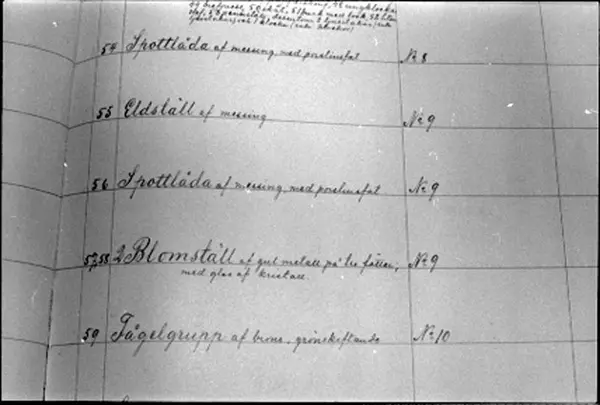 54 Spottlåda af messing, med porslinsfat No 8
55 Eldställ af messing No 9
56 Spottlåda af messing, med porslinsfat No 9
57,58 2 Blomställ af gul metall på tre fötter,
No 9
med glas af kristall.
59 Fågelgrupp af brons, grönskiftande No 10